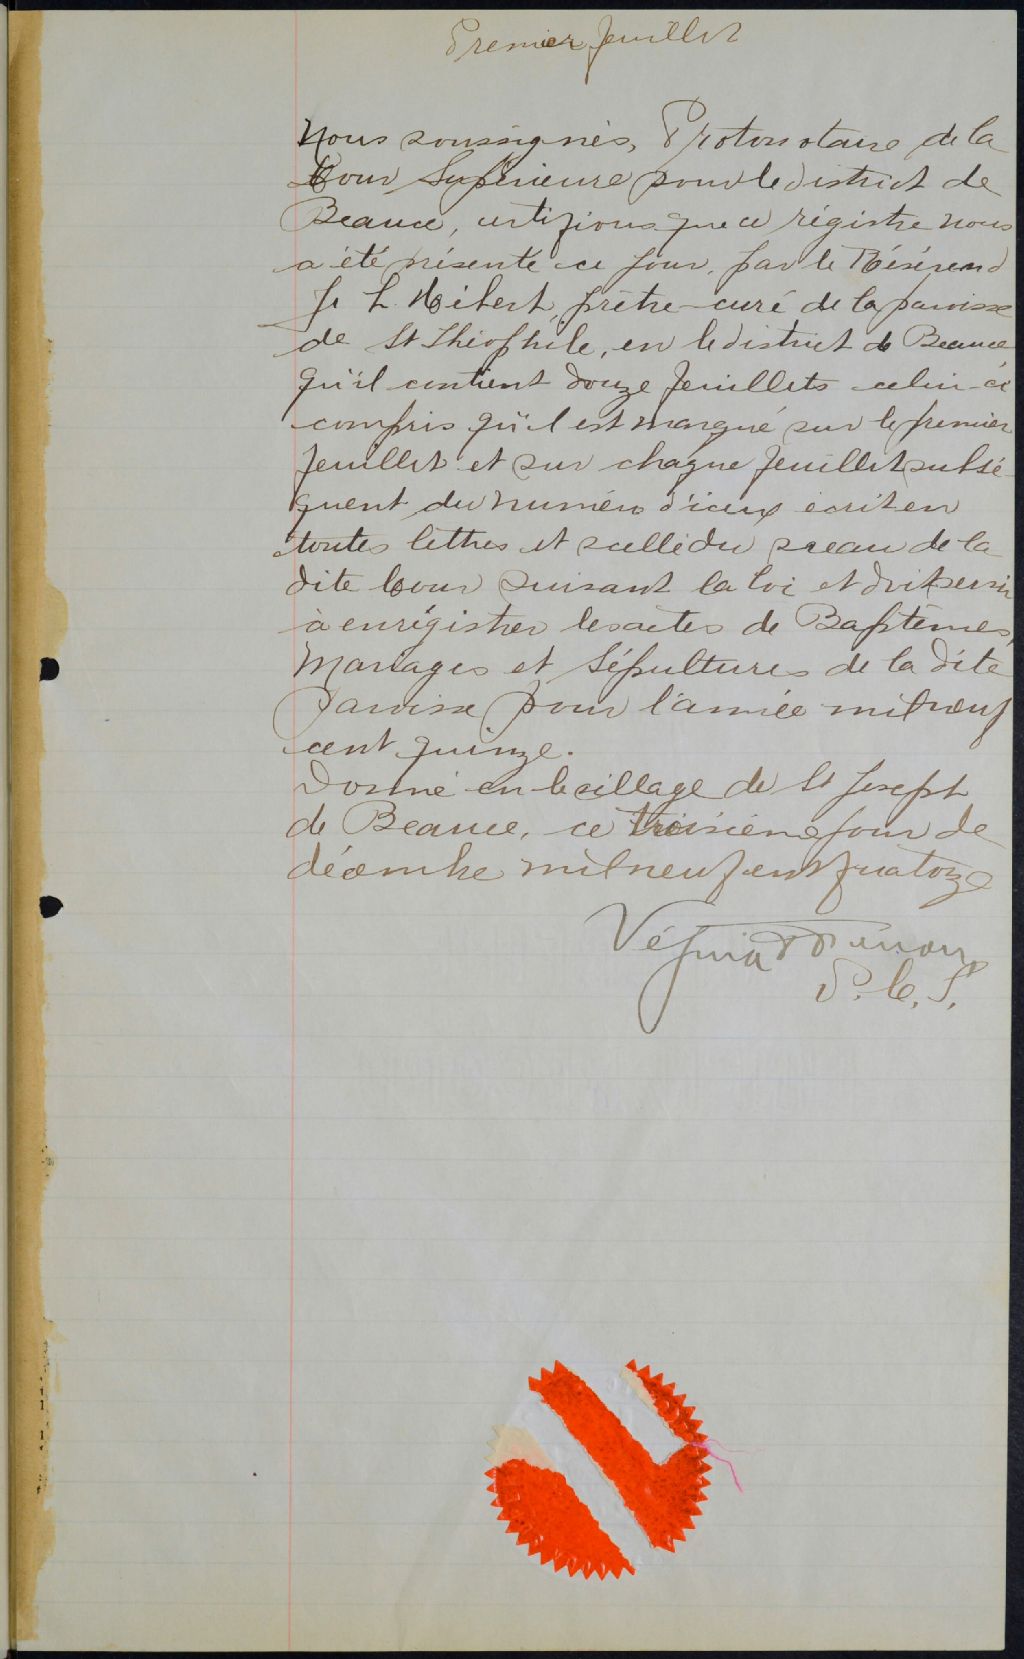 Premier feuillet
Nous soussignés, Protonotaire de la
Cour Supérieure pour le district de
Beauce, certifions que ce régistre nous
a été présenté ce jour, par le Révérend
J. L. Hébert, prêtre-curé de la paroisse
de St Théophile, en le district de Beauce,
qu'il contient douze feuillets celui-ci
compris qu'il est marqué sur le premier
feuillet et sur chaque feuillet subsé-
quent du numéro d'iceux écrit en
toutes lettres et scellé du sceau de la
dite Cour suivant la loi et doit servir
à enrégistrer les actes de Baptêmes,
Mariages et Sépultures de la dite
Paroisse pour l'année mil neuf
cent quinze.
Donné en le village de St Joseph
de Beauce, ce troisième jour de
décembre mil neuf cent quatorze
Vézina
P. C. S.